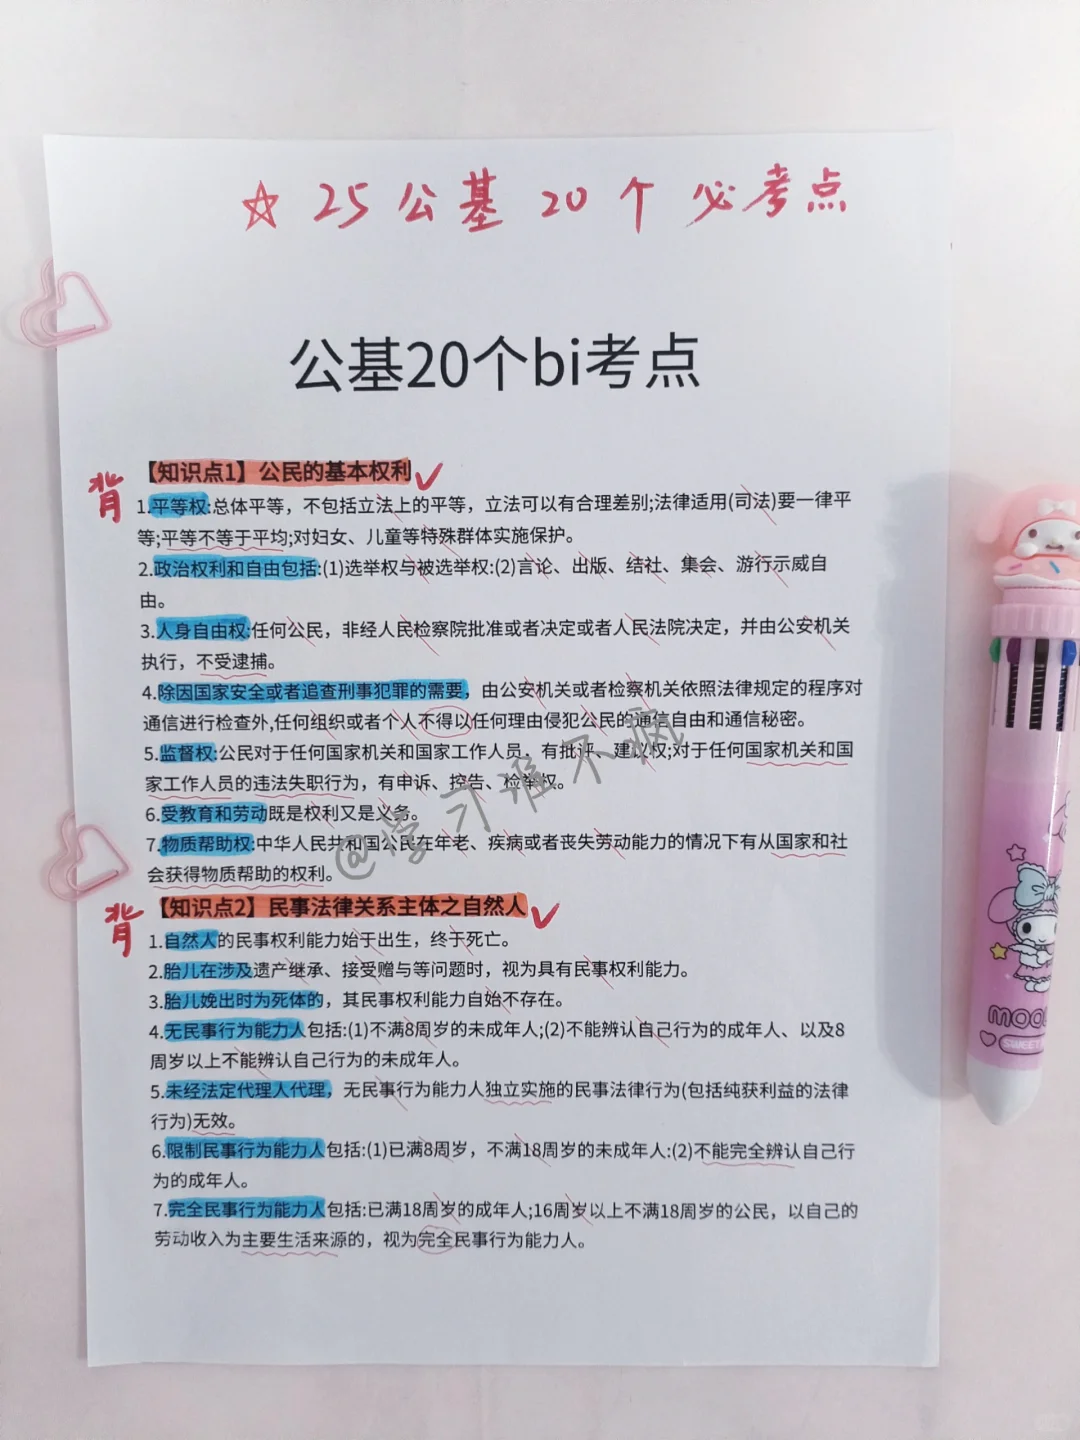 ☆ 25公基 20个 必考点
公基20个bi考点
【知识点1】公民的基本权利
背
1.平等权:总体平等，不包括立法上的平等，立法可以有合理差别;法律适用(司法)要一律平
等;平等不等于平均;对妇女、儿童等特殊群体实施保护。
2.政治权利和自由包括:(1)选举权与被选举权:(2)言论、出版、结社、集会、游行示威自
由。
3.人身自由权:任何公民，非经人民检察院批准或者决定或者人民法院决定，并由公安机关
执行，不受逮捕。
4.除因国家安全或者追查刑事犯罪的需要，由公安机关或者检察机关依照法律规定的程序对
通信进行检查外,任何组织或者个人不得以任何理由侵犯公民的通信自由和通信秘密。
5.监督权:公民对于任何国家机关和国家工作人员，有批评、建议权;对于任何国家机关和国
家工作人员的违法失职行为，有申诉、控告、检举权。
6.受教育和劳动既是权利又是义务。
7.物质帮助权:中华人民共和国公民在年老、疾病或者丧失劳动能力的情况下有从国家和社
会获得物质帮助的权利。
@学习谁不疯
【知识点2】民事法律关系主体之自然人
背
1.自然人的民事权利能力始于出生，终于死亡。
2.胎儿在涉及遗产继承、接受赠与等问题时，视为具有民事权利能力。
3.胎儿娩出时为死体的，其民事权利能力自始不存在。
4.无民事行为能力人包括:(1)不满8周岁的未成年人;(2)不能辨认自己行为的成年人、以及8
周岁以上不能辨认自己行为的未成年人。
5.未经法定代理人代理，无民事行为能力人独立实施的民事法律行为(包括纯获利益的法律
行为)无效。
6.限制民事行为能力人包括:(1)已满8周岁，不满18周岁的未成年人:(2)不能完全辨认自己行
为的成年人。
7.完全民事行为能力人包括:已满18周岁的成年人;16周岁以上不满18周岁的公民，以自己的
劳动收入为主要生活来源的，视为完全民事行为能力人。